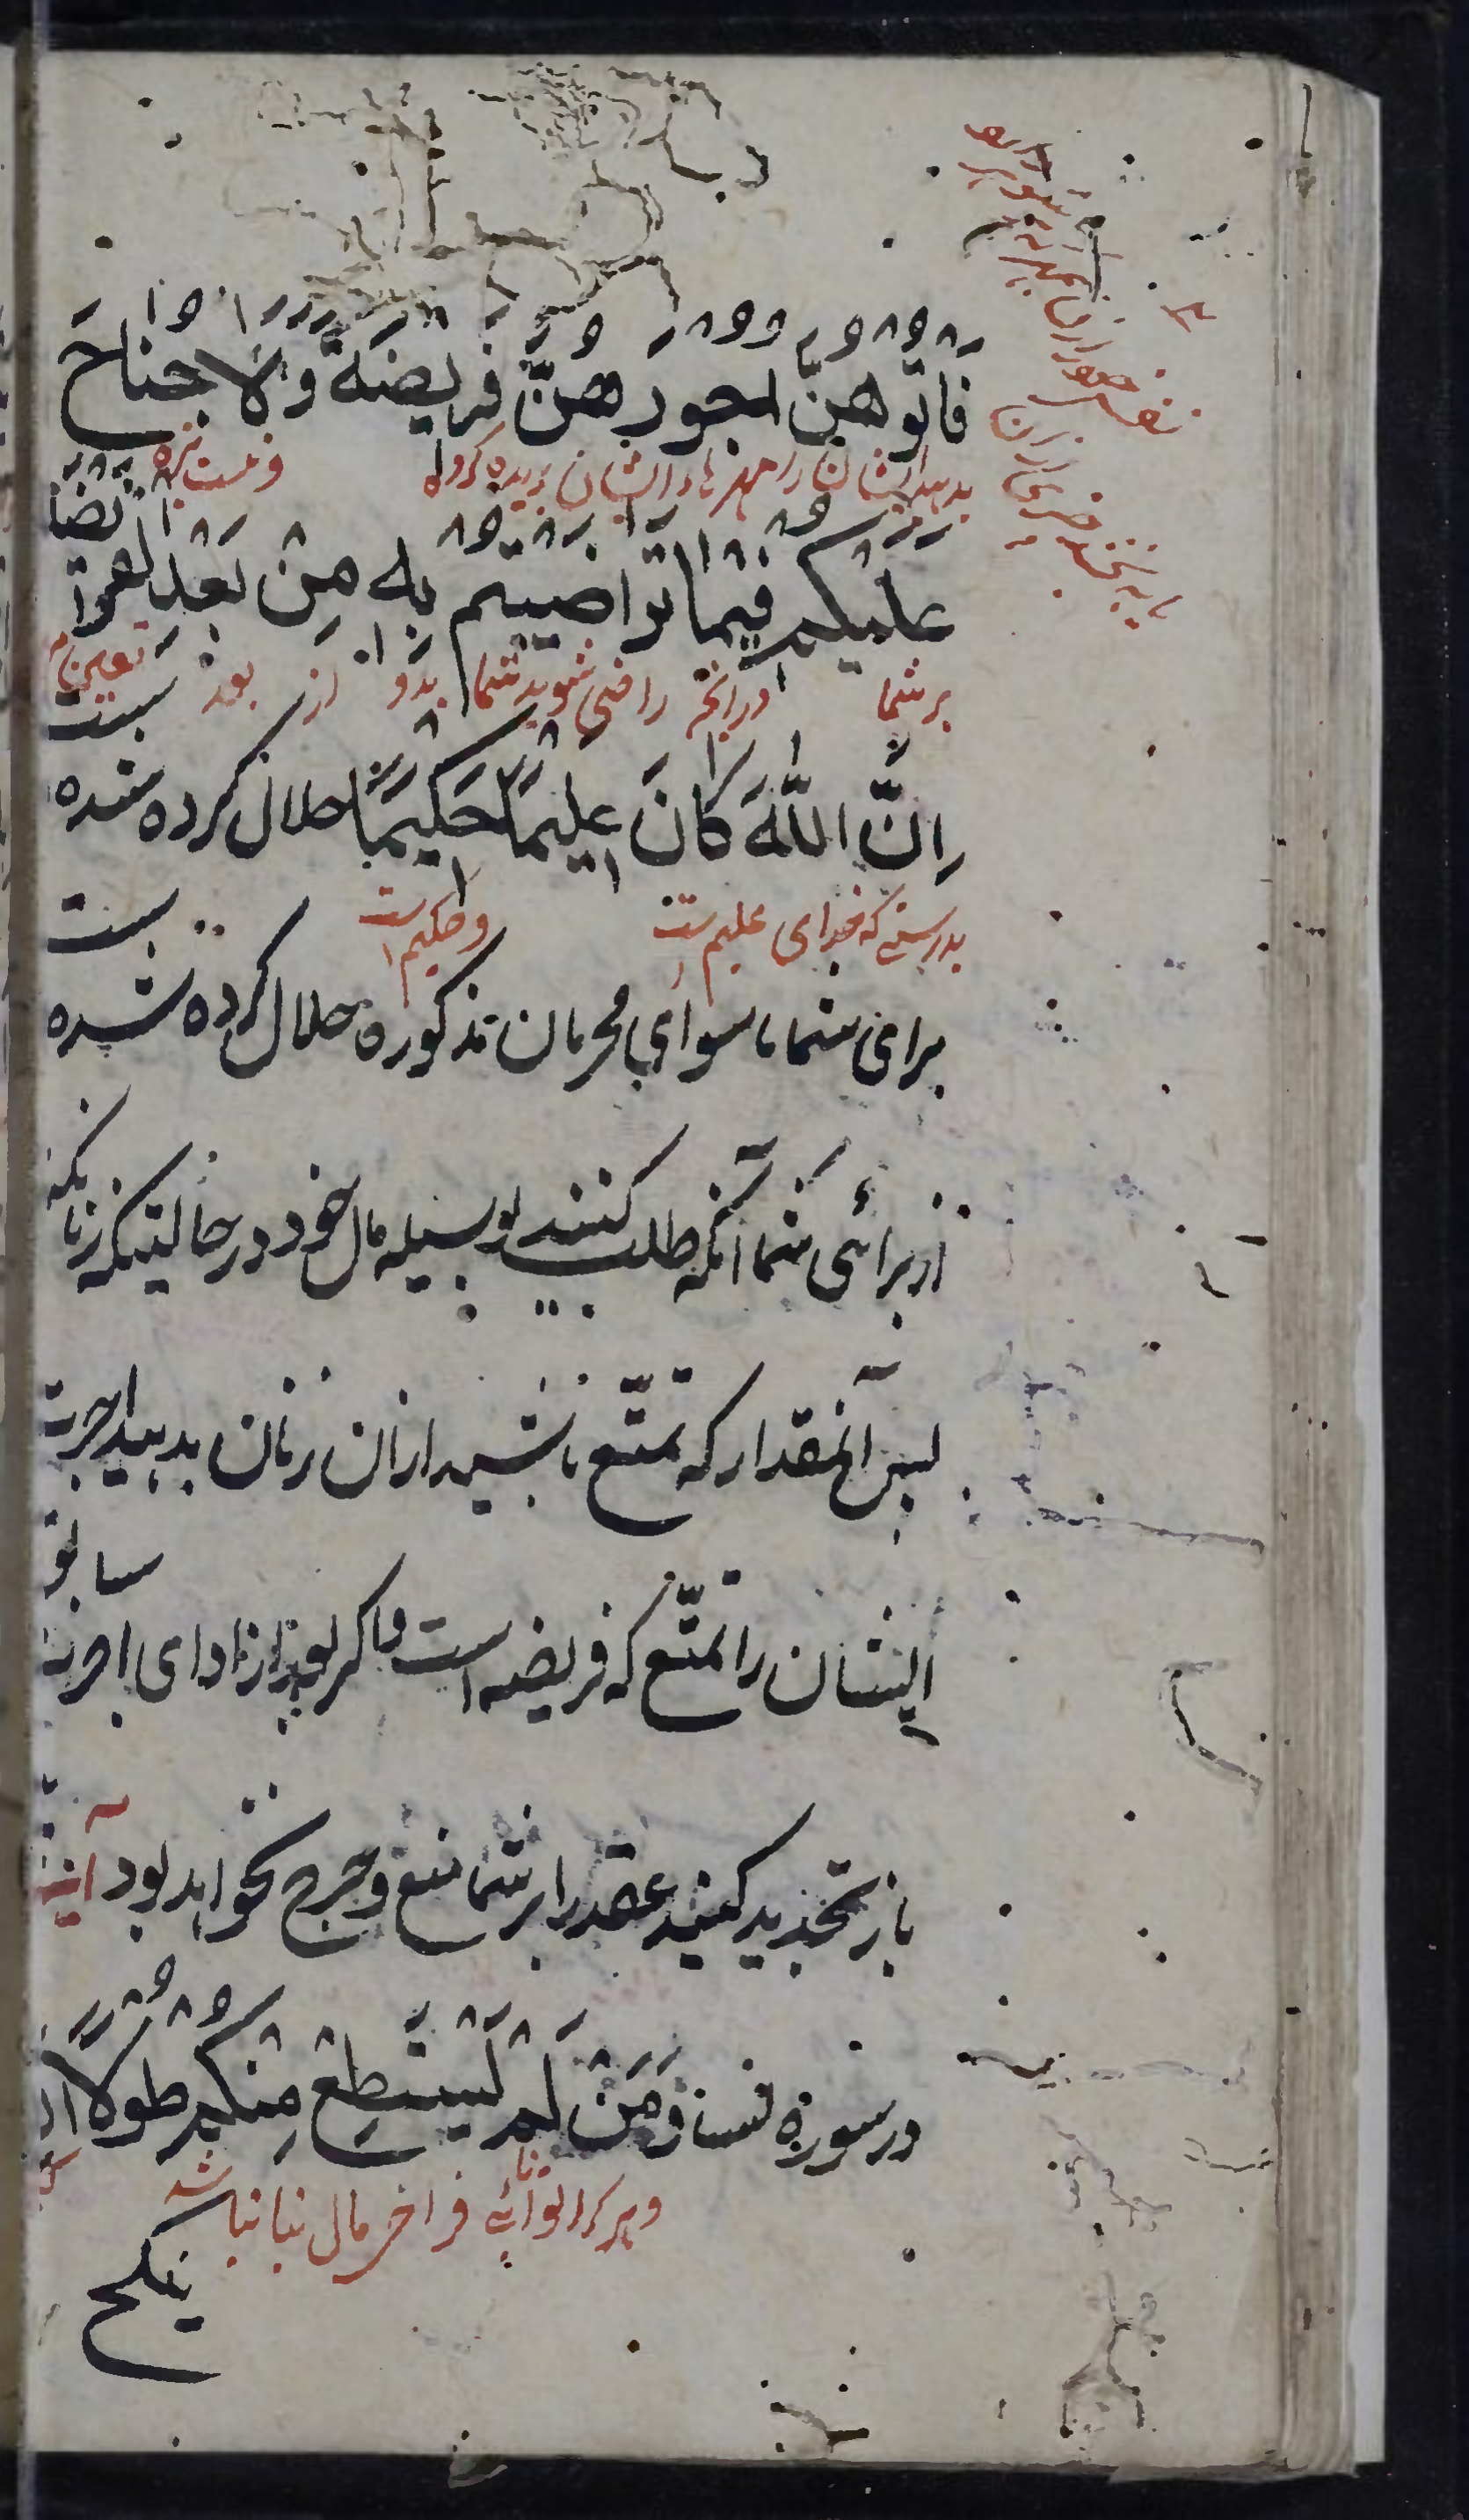 فَآتُوهُنَّ اُجُورَهُنَّ فَرِیضَةً وَلَا جُنَاحَ
بدهید ایشان را مهرهاء ایشان بریده کرده و نیست بزه
عَلَیْکُمْ فِیمَا تَرَاضَیْتُمْ بِهِ مِنْ بَعْدِ الْفَرِیضَ
بر شما در آنچه راضی شوید شما بدو از بعد تعین نام
اِنَّ اللّٰهَ کَانَ عَلِیمًا حَکِیمًا حلال کرده شده ست
بدرستی که خدای علیم ست و حکیم ست
برای شما ماسوای محرمان مذکوره حلال کرده شده ست
از برائی شما آنکه طلب کنید بوسیله مال خود در حالتیکه زنا نکنه
پس آنمقدار که تمتّع باشید از آن زنان بدهید اجرت
ایشان را تمتّع که فریضه است و اگر بعد از ادای اجرت سابق
باز تجدید کنید عقد را بر شما منع و حرج نخواهد بود آیة
در سورة نسا وَمَنْ لَمْ یَسْتَطِعْ مِنْکُمْ طَوْلًا اَنْ
و هر کرا توانائی فراخی مال نباشد
ینکح